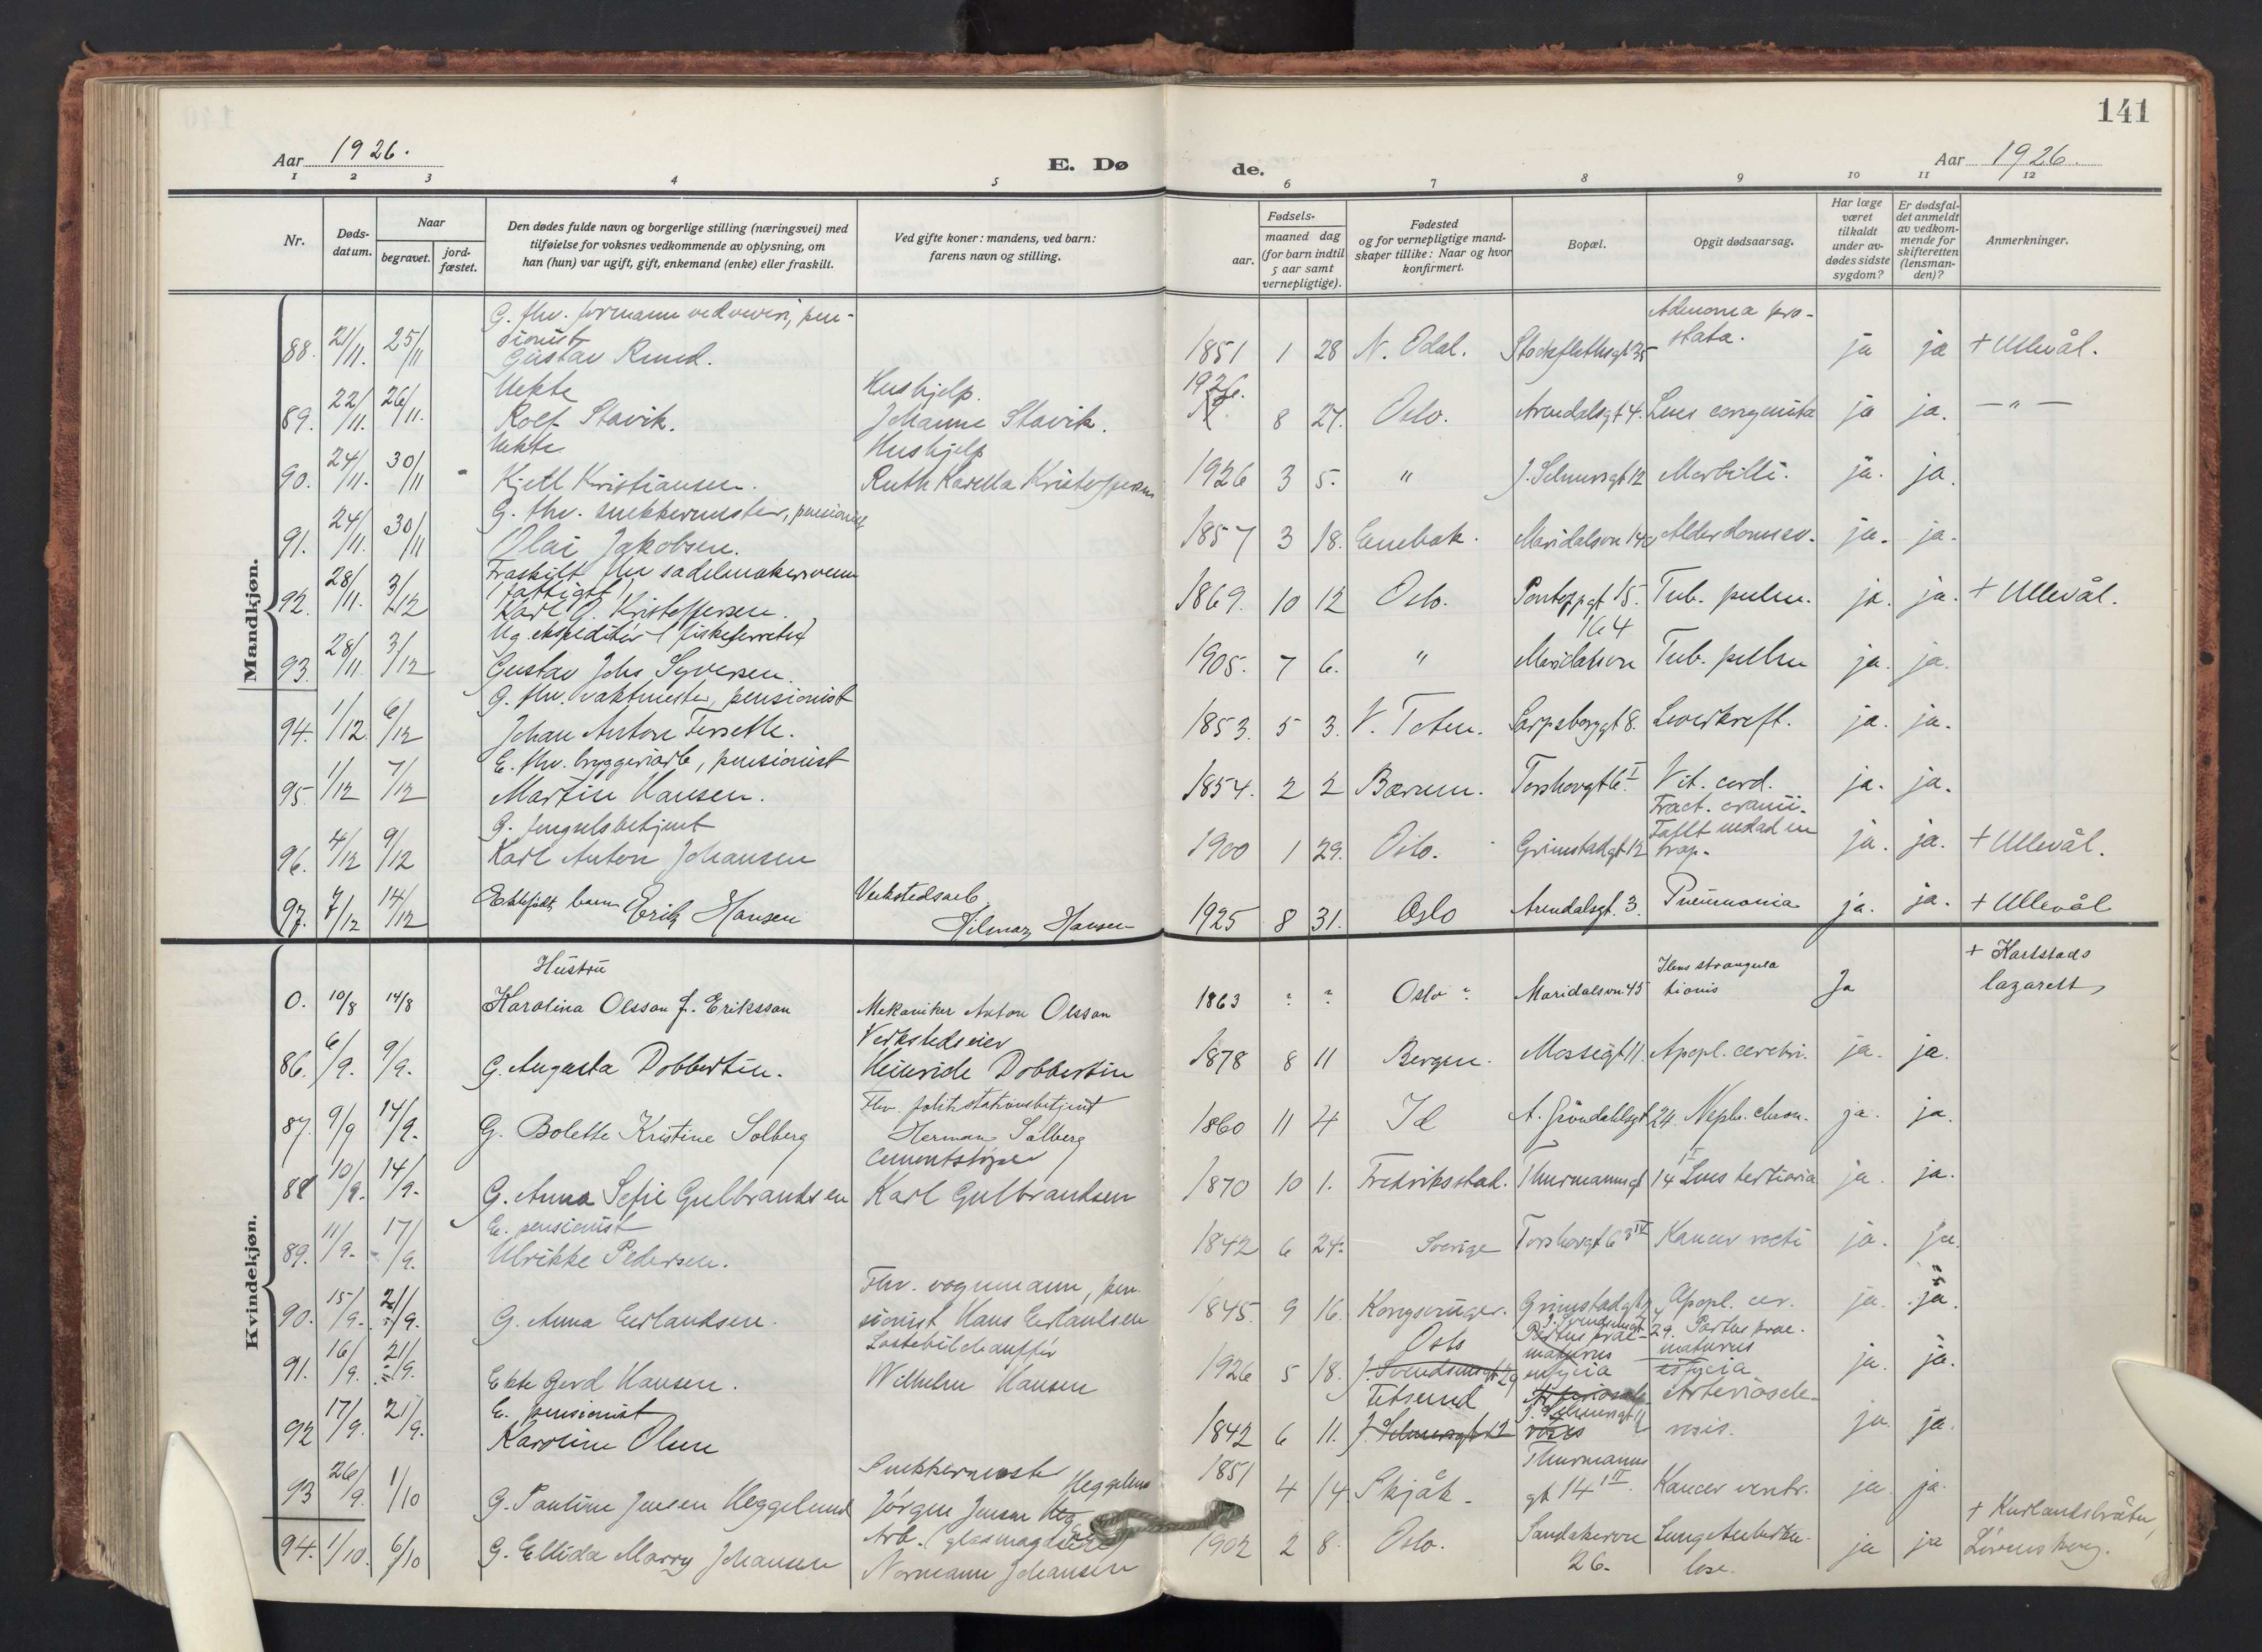 141
Aar 1926.
E. Døde.
Aar 1926.
1 2 3 4 5 6 7 8 9 10 11 12
Nr.
Døds-datum.
Naar
begravet.
jord-fæstet.
Den dødes fulde navn og borgerlige stilling (næringsvei) med
tilføielse for voksnes vedkommende av oplysning, om
han (hun) var ugift, gift, enkemand (enke) eller fraskilt.
Ved gifte koner: mandens, ved barn:
farens navn og stilling.
Fødsels-
aar.
maaned dag
(for barn indtil
5 aar samt
vernepligtige).
Fødested
og for vernepligtige mand-
skaper tillike: Naar og hvor
konfirmert.
Bopæl.
Opgit dødsaarsag.
Har læge
været
tilkaldt
under av-
dødes sidste
sygdom?
Er dødsfal-
det anmeldt
av vedkom-
mende for
skifteretten
(lensman-
den)?
Anmerkninger.
Mandkjøn.
G. fhv. formann ved veives, pen- Adenoma pro-
88. 21/11. 25/11 sionist Gustav Rund. 1851 1 28 N. Odal. Stockflethsgt 35 stata. ja ja + Ullevål.
Uekte Hushjelp. 1926.
89. 22/11. 26/11. Rolf Stavik. Johanne Stavik. 8 27. Oslo. Arendalsgt 4. Lues congenita ja ja. — " —
Uekte Hushjelp
90. 24/11. 30/11 Kjell Kristiansen. Ruth Karella 1926 3 5. " J. Selmersgt 12 Morbilli. ja. ja.
G. fhv. snekkermester, pensionist
91. 24/11. 30/11 Olai Jakobsen. 1857 3 18. Enebak. Maridalsvn 140 Alderdomssv. ja. ja.
Fraskilt fhv sadelmakersvenn
(fattigt)
92. 28/11. 3/12 Karl G. Kristoffersen. 1869. 10 12 Oslo. Pontoppgt 15. Tub. pulm. ja. ja. + Ullevål.
Ug. ekspeditør (fiskeforretn) 164
93. 28/11. 3/12 Gustav Johs Syversen. 1905. 7 6. " Maridalsvn Tub. pulm ja. ja.
G. fhv. vaktmester, pensionist
94. 1/12. 6/12 Johan Anton 1853. 5 3. V. Toten. Sarpsborggt 8. Leverkreft. ja. ja.
E. fhv. bryggeriarb, pensionist
95. 1/12 7/12 Martin Hansen. 1854. 2 2 Bærum. Torshovgt 6 I Vit. cord. ja. ja.
G. fengselsbetjent Fract. cranii.
96. 4/12 9/12 Karl Anton Johansen 1900 1 29. Oslo. Grimstadgt 12 Fallt nedad en trap. ja. ja. + Ullevål.
97. 7/12 14/12 Ektefødt barn Erik Hansen Verkstedsarb Hilmar Hansen 1925 8 31. Oslo Arendalsgt. 3. Pneumonia ja. ja. + Ullevål
Kvindekjøn.
Hustru Ileus strangula + Karlstads
0. 10/8 14/8 Karolina Olsson f. Eriksson Mekaniker Anton Olsson 1863 ? ? Oslo ? Maridalsvn 45 tionis Ja lazarett
Verkstedseier
86. 6/9. 9/9. G. Augusta Dobbertin. Heinrich Dobbertin 1878 8 11 Bergen. Mossegt 11. Apopl. cerebri. ja. ja.
Fhv. politistationsbetjent
87. 9/9 14/9. G. Bolette Kristine Solberg Herman Solberg 1860 11 4 Id A. Grøndahlsgt 24. Neph. chron. ja. ja.
Cementstøper
88 10/9. 14/9. G. Anna Sofie Gulbrandsen Karl Gulbrandsen 1870 10 1. Fredriksstad. Thurmannsgt 14 II Lues tertiaria ja. ja.
E. pensionist
89. 11/9. 17/9. Ulrikke Pedersen. 1842 6 24. Sverige Torshovgt 6 Kancer recti ja. ja.
Fhv. vognmann, pen-
90. 15/9. 21/9. G. Anna Erlandsen. sionist Hans Erlandsen 1845. 9 16. Kongsvinger. Grimstadgt Apopl. cer. ja. ja.
Lastebilchauffør Oslo J. Svendsensgt 29. Partus prae-
91. 16/9. 21/9. Ekte Gerd Hansen. Wilhelm Hansen 1926 5 18. J. Svendsensgt 29 maturus ja. ja.
E. pensionist Fetsund J. Selmersgt 12 Arterioscle-
92 17/9. 21/9. Karoline Olsen 1842 6 11. J. Selmersgt 12 rosis. ja ja.
Snekkermester Heggelund Thurmanns
93 26/9. 1/10 G. Pauline Jensen Heggelund Jørgen Jensen 1851 4 14 Skjåk. gt 14 II. Kancer ventr. ja. ja.
Arb. + Kurlandsbråten,
94. 1/10. 6/10 G. Ellida Marry Johansen Normann Johansen 1902 2 8. Oslo. Sandakervn 26. Lungetuberku-lose. ja ja Lørenskog.